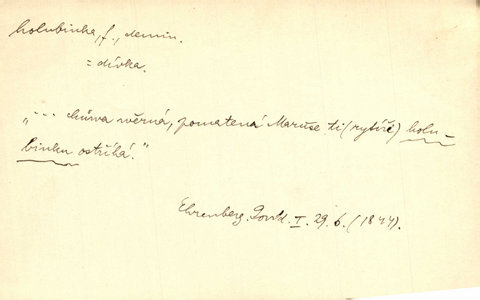 holubinka, f., demin.
= dívka.
„... chůva věrná, pomatená Maruše ti (rytíři) holu-
binku ostříhá."
Ehrenberg. Povíd. I. 29. 6. (1844).